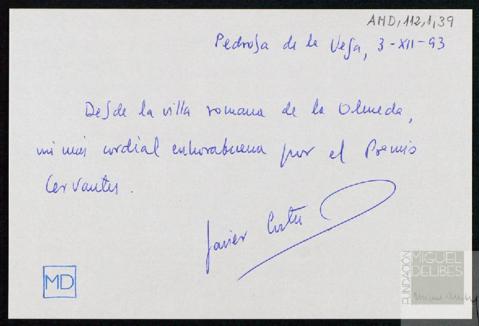 AMD,112,1,39
Pedrosa de la Vega, 3-XII-93
Desde la villa romana de la Olmeda,
mi más cordial enhorabuena por el Premio
Cervantes.
Javier Cortes
MD
FUNDACIÓN
MIGUEL
DELIBES